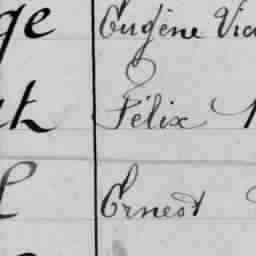 ge Eugène Vic
th Félix
l Ernest